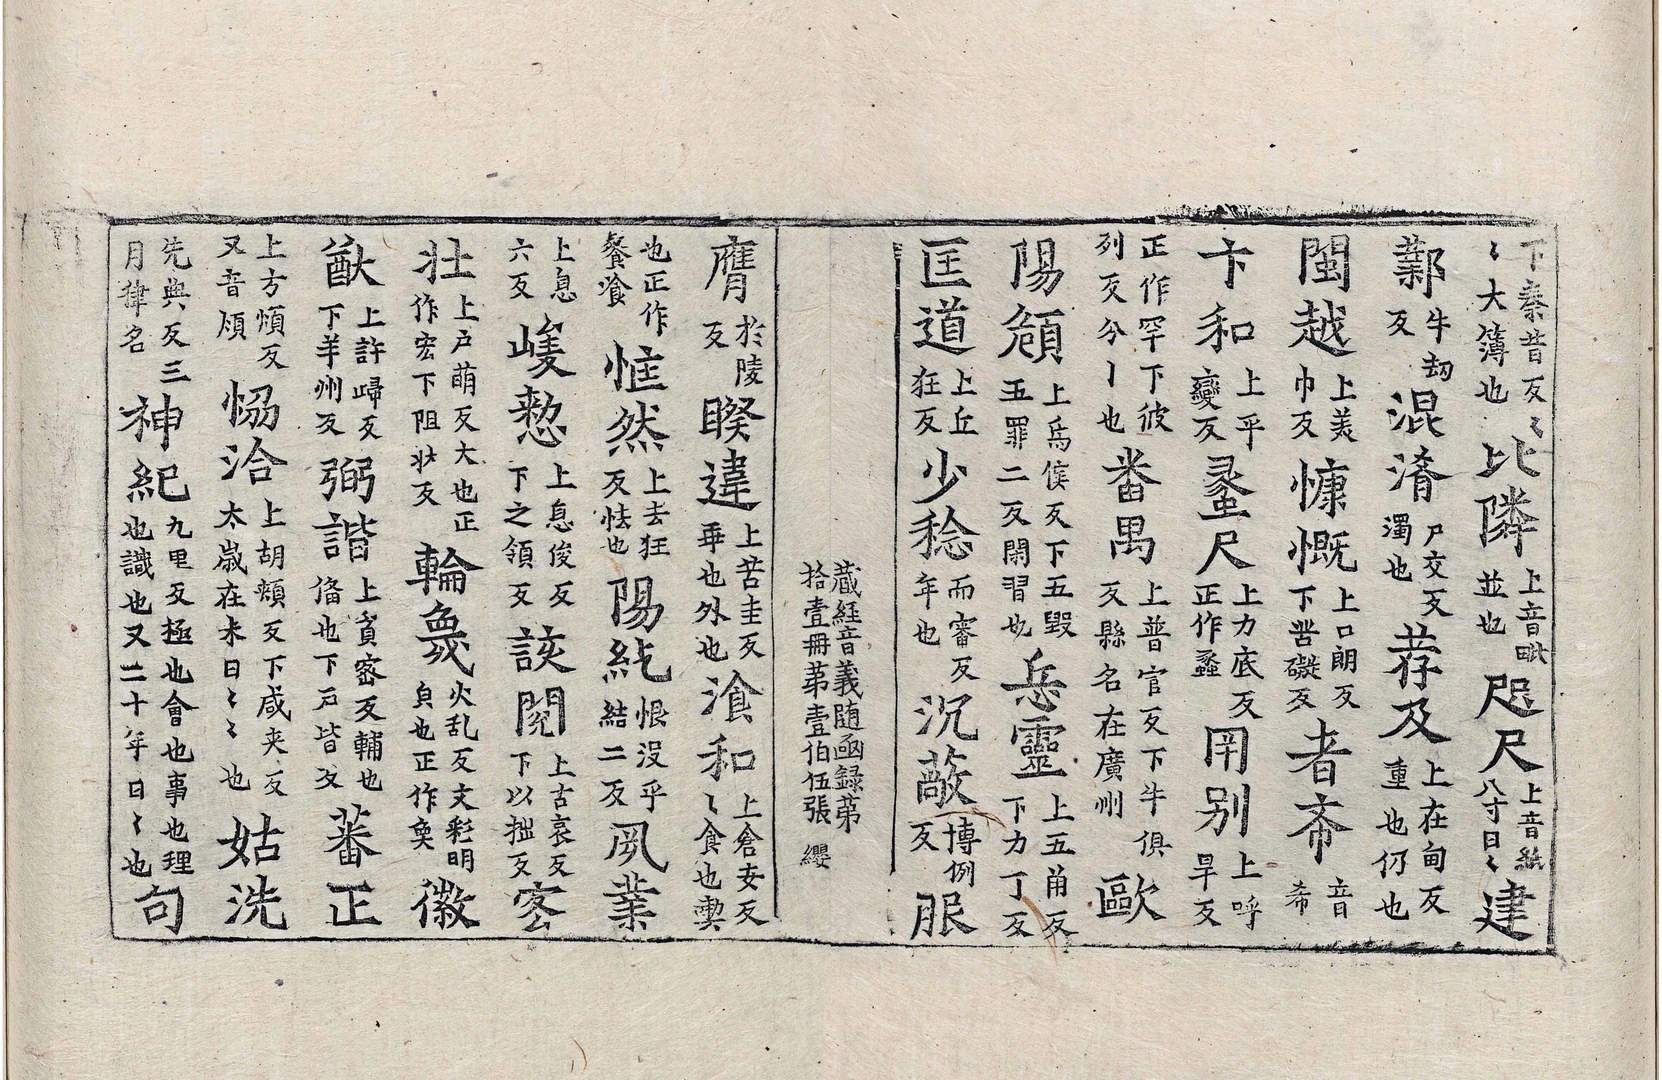 下秦昔反〻〻大簿也比隣上音毗並也咫尺上音紙八寸曰〻建
鄴牛劫反混淆戶交反濁也荐及上在甸反重也仍也
閩越上美巾反慷慨上口朗反下苦礙反者帝音希
卞和上平變反蠡尺上力底反正作蠡罔别上呼旱反
正作罕下彼列反分丨也番禺上普官反下牛俱反縣名在廣州歐
陽頠上烏侯反下五毀五罪二反閑習也岳靈上五角反下力丁反
匡道上丘狂反少稔而審反年也沉蔽博例反服
藏經音義随函録苐
拾壹冊苐壹伯伍張 纓
膺於陵反睽違上苦圭反乖也外也飡和上倉安反〻食也䙝
也正作餐飡恇然上去狂反怯也陽紇恨没乎結二反夙業
上息六反㟨㔟上息俊反下之領反該閱上古哀反下以拙反宻
壯上户萌反大也正作宏下阻壯反輪奐火乱反文彩明皃也正作奐徽
猷上許歸反下羊州反弼諧上貧宻反輔也俻也下戸皆反蕃正
上方煩反又音煩恊洽上胡頰反下咸夾反太歳在未曰〻〻也姑洗
先典反三月律名神紀九里反極也會也事也理也識也又二十年曰〻也句